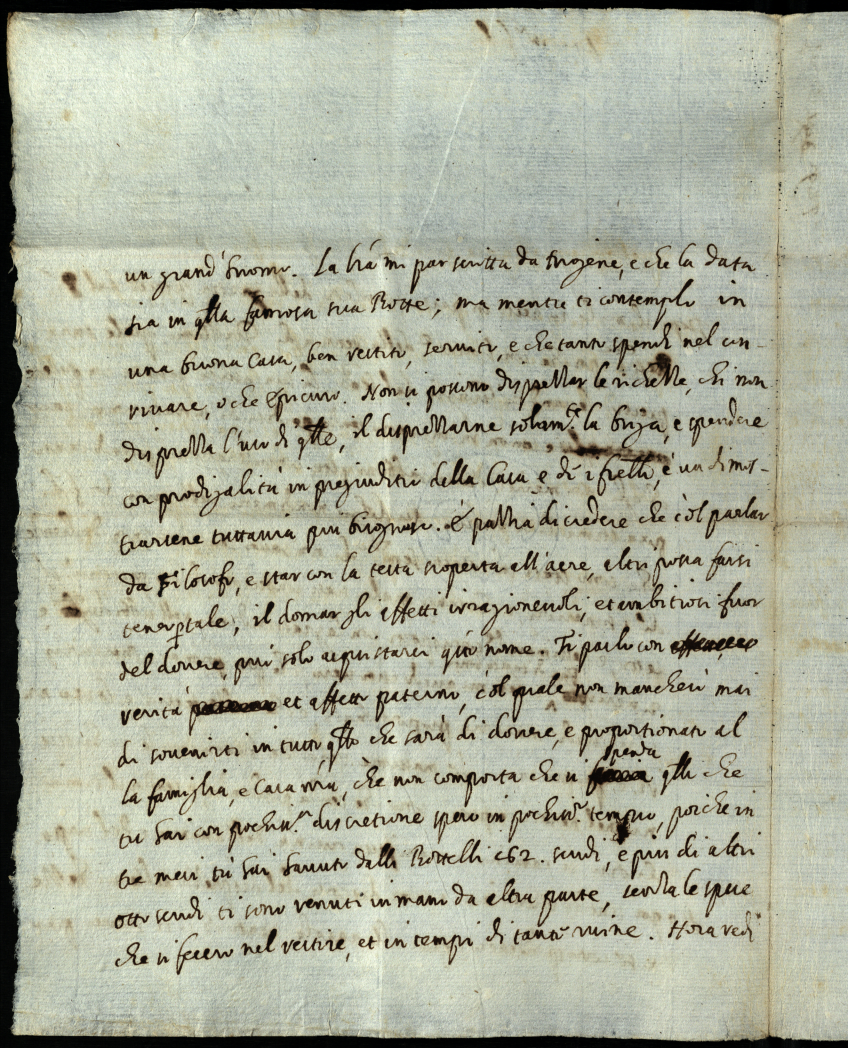 un grand'huomo. La lra mi par scritta da Diogene, e che la data
sia in qlla famosa sua Botte; ma mentre ti contemplo in
una buona Casa, ben vestito, servito, e che tanto spendi nel con-
vivare, o che Epicuro. Non si possono disprezzar le richezze, chi non
disprezza l'uso di qlle, il disprezzarne solam.te la briga, e spendere
con prodigalità in pregiuditio della Casa e di i frelli, è un dimos-
trarsene tuttavia più bisognoso. È pazzia di credere che c'ol parlar
da Filosofo, e star con la testa scoperta all'aere, altri possa farsi
tener p tale, il domar gli affetti irragionevoli, et ambitiosi fuor
del dovere, può solo acquistarci qto nome. Ti parlo con
verità et affetto paterno, c'ol quale non mancherò mai
di sovenirti in tutto qllo che sarà di dovere, e proportionato al
la famiglia, e Casa mia, che non comporta che si spenda qlli che
tu hai con pochiss.a discretione speso in pochiss.o tempo, poiche in
tre mesi tù hai havuto dalli Bottelli 162. scudi, e più di altri
otto scudi ti sono venuti in mano da altra parte, senza le spese
che si fecero nel vestire, et in tempi di tante ruine. Hora vedi